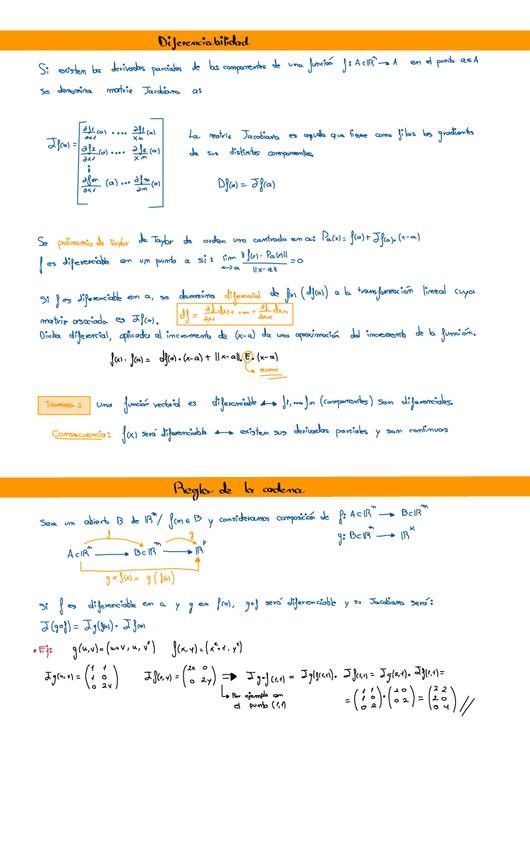 Diferenciabilidad
Si existen las derivadas parciales de las componentes de una función f: A⊂ℝⁿ → A en el punto a∈A
se denomina matriz Jacobiana a:
Jf(a) = [ ∂f1/∂x1 (a) .... ∂f1/xm (a)
∂f2/∂x1 (a) .... ∂f2/xm (a)
⋮
∂fm/∂x1 (a) ... ∂fm/∂m (a) ]
La matriz Jacobiana es aquella que tiene como filas los gradientes
de sus distintas componentes
Df(a) = Jf(a)
Se polinomio de Taylor de Taylor de orden uno centrado en a: Pa(x) = f(a) + Jf(a).(x-a)
f es diferenciable en un punto a si: lim x→a ||f(x) - Pa(x)|| / ||x-a|| = 0
Si f es diferenciable en a, se denomina diferencial de f en (df(a)) a la transformación lineal cuya
matriz asociada es Jf(a). df = ∂f/∂x1 dx1 + .... + ∂f/∂xm dxm
Dicha diferencial, aplicada al incremento de (x-a) da una aproximación del incremento de la función.
f(x) - f(a) = df(a).(x-a) + ||x-a||. E.(x-a)
error
Teorema 2 Una función vectorial es diferenciable ↔ f1,....fm (componentes) son diferenciales.
Consecuencia: f(x) será diferenciable ↔ existen sus derivadas parciales y son continuas
Regla de la cadena
Sea un abierto B de ℝᵐ / f(A) ∈ B y consideramos composición de f: A⊂ℝⁿ → B⊂ℝᵐ
g: B⊂ℝᵐ → ℝᴷ
f g
A⊂ℝⁿ → B⊂ℝᵐ → ℝᴷ
g∘f(x) = g(f(x))
Si f es diferenciable en a y g en f(a), g∘f será diferenciable y su Jacobiana será:
J(g∘f) = Jg(f(a)) . Jf(a)
• Ej: g(u,v) = (u+v, u, v²) f(x,y) = (x²+1, y²)
Jg(u,v) = (1 1 / 1 0 / 0 2v) Jf(x,y) = (2x 0 / 0 2y) ⇒ Jg∘f(1,1) = Jg(f(1,1)). Jf(1,1) = Jg(2,1). Jf(1,1) =
↳ Por ejemplo en
el punto (1,1)
= (1 1 / 1 0 / 0 2) . (2 0 / 0 2) = (2 2 / 2 0 / 0 4) //